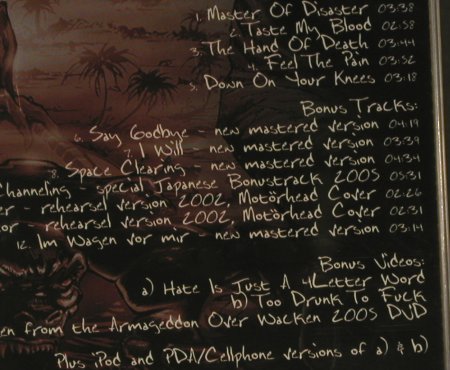 1. Master Of Disaster 03:38
2. Taste My Blood 02:58
3. The Hand Of Death 03:44
4. Feel The Pain 03:52
5. Down On Your Knees 03:18
Bonus Tracks:
6. Say Godbye - new mastered version 04:19
7. I Will - new mastered version 03:39
8. Space Clearing - new mastered version 04:34
Channeling - special Japanese Bonustrack 2005 05:31
er - rehearsel version 2002, Motörhead Cover 02:26
or - rehearsel version 2002, Motörhead Cover 02:31
12. Im Wagen vor mir - new mastered version 03:14
Bonus Videos:
a) Hate Is Just A 4Letter Word
b) Too Drunk To Fuck
en from the Armageddon Over Wacken 2005 DVD
Plus iPod and PDA/Cellphone versions of a) & b)